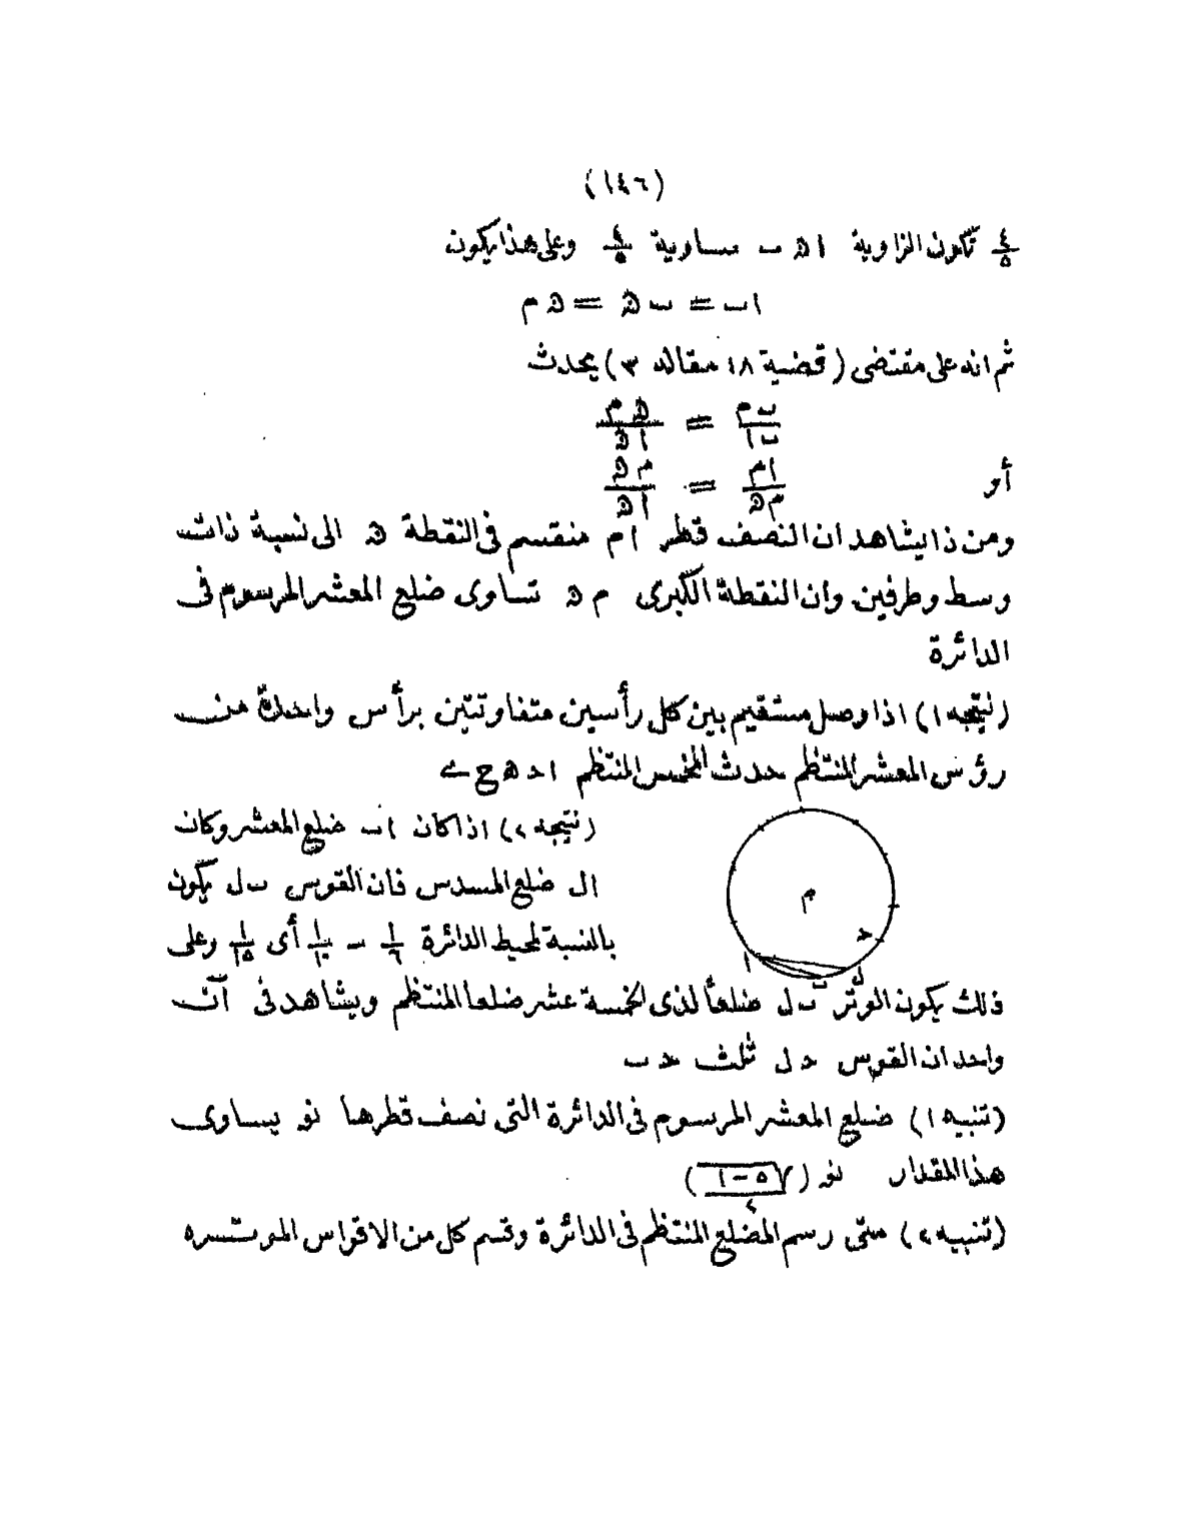 (١٤٦)
٤/٥ تكون الزاوية ا ه ب مساوية ٤/٥ وعلى هذا يكون
اب = ب ه = ه م
ثم انه على مقتضى (قضية ١٨ مقاله ٣) يحدث
ب م / ب ا = ه م / ا ه
أو ا م / م ه = م ه / ا ه
ومن ذا يشاهد ان النصف قطر ا م منقسم فى النقطة ه الى نسبة ذات
وسط وطرفين وان النقطة الكبرى م ه تساوى ضلع المعشر المرسوم فى
الدائرة
(نتيجه ١) اذا وصل مستقيم بين كل رأسين متفاوتتين برأس واحدة من
رؤس المعشر المنتظم حدث المخمس المنتظم ا د ه ح ى
(نتيجه ٢) اذا كان اب ضلع المعشر وكان
ال ضلع المسدس فان القوس ب ل يكون
بالنسبة لمحيط الدائرة ١/٦ - ١/١٠ أى ١/١٥ وعلى
م
ح
ا
ب
ل
ذلك يكون الوتر ب ل ضلعاً لذى الخمسة عشر ضلعا المنتظم ويشاهد فى آن
واحد ان القوس ح ل ثلث ح ب
(تنبيه ١) ضلع المعشر المرسوم فى الدائرة التى نصف قطرها نو يساوى
هذا المقدار نو (√٥ - ١ / ٢)
(تنبيه ٢) متى رسم المضلع المنتظم فى الدائرة وقسم كل من الاقواس الموتسره